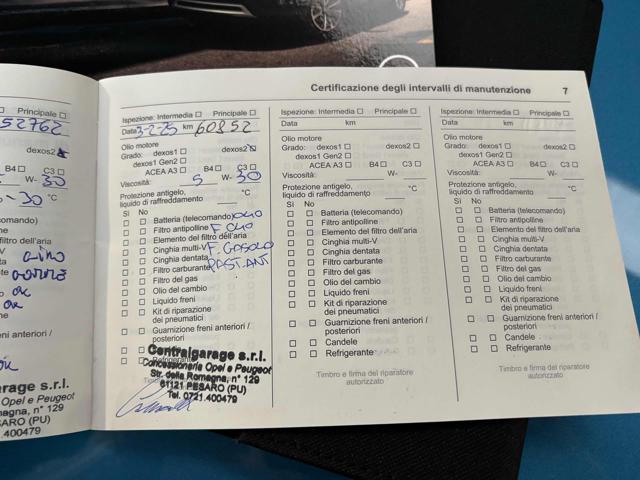 Certificazione degli intervalli di manutenzione 7
Principale ☐
52762
dexos2
C3 ☐
W- 30
-30 °C
comando)
e
filtro dell'aria
V
a
nte
ok
e
ne
ti
anteriori /
ok
arage s.r.l.
Opel e Peugeot
magna, n° 129
ARO (PU)
.400479
Ispezione: Intermedia ☐ Principale ☐
Data 3-2-25 km 60852
Olio motore
Grado: dexos1 ☐ dexos2 ☒
dexos1 Gen2 ☐
ACEA A3 ☐ B4 ☐ C3 ☐
Viscosità: 5 W- 30
Protezione antigelo,
liquido di raffreddamento °C
Sì No
☐ ☐ Batteria (telecomando) olio
☐ ☐ Filtro antipolline F. olio
☐ ☐ Elemento del filtro dell'aria
☐ ☐ Cinghia multi-V F. GASOLO
☐ ☐ Cinghia dentata
☐ ☐ Filtro carburante PAST. ANT
☐ ☐ Filtro del gas
☐ ☐ Olio del cambio
☐ ☐ Liquido freni
☐ ☐ Kit di riparazione
dei pneumatici
☐ ☐ Guarnizione freni anteriori /
posteriori
☐ ☐ Refrigerante
Centralgarage s.r.l.
Concessionaria Opel e Peugeot
Str. della Romagna, n° 129
61121 PESARO (PU)
Tel. 0721.400479
Ispezione: Intermedia ☐ Principale ☐
Data km
Olio motore
Grado: dexos1 ☐ dexos2 ☐
dexos1 Gen2 ☐
ACEA A3 ☐ B4 ☐ C3 ☐
Viscosità: W-
Protezione antigelo,
liquido di raffreddamento °C
Sì No
☐ ☐ Batteria (telecomando)
☐ ☐ Filtro antipolline
☐ ☐ Elemento del filtro dell'aria
☐ ☐ Cinghia multi-V
☐ ☐ Cinghia dentata
☐ ☐ Filtro carburante
☐ ☐ Filtro del gas
☐ ☐ Olio del cambio
☐ ☐ Liquido freni
☐ ☐ Kit di riparazione
dei pneumatici
☐ ☐ Guarnizione freni anteriori /
posteriori
☐ ☐ Candele
☐ ☐ Refrigerante
Timbro e firma del riparatore
autorizzato
Ispezione: Intermedia ☐ Principale ☐
Data km
Olio motore
Grado: dexos1 ☐ dexos2 ☐
dexos1 Gen2 ☐
ACEA A3 ☐ B4 ☐ C3 ☐
Viscosità: W-
Protezione antigelo,
liquido di raffreddamento °C
Sì No
☐ ☐ Batteria (telecomando)
☐ ☐ Filtro antipolline
☐ ☐ Elemento del filtro dell'aria
☐ ☐ Cinghia multi-V
☐ ☐ Cinghia dentata
☐ ☐ Filtro carburante
☐ ☐ Filtro del gas
☐ ☐ Olio del cambio
☐ ☐ Liquido freni
☐ ☐ Kit di riparazione
dei pneumatici
☐ ☐ Guarnizione freni anteriori /
posteriori
☐ ☐ Candele
☐ ☐ Refrigerante
Timbro e firma del riparatore
autorizzato